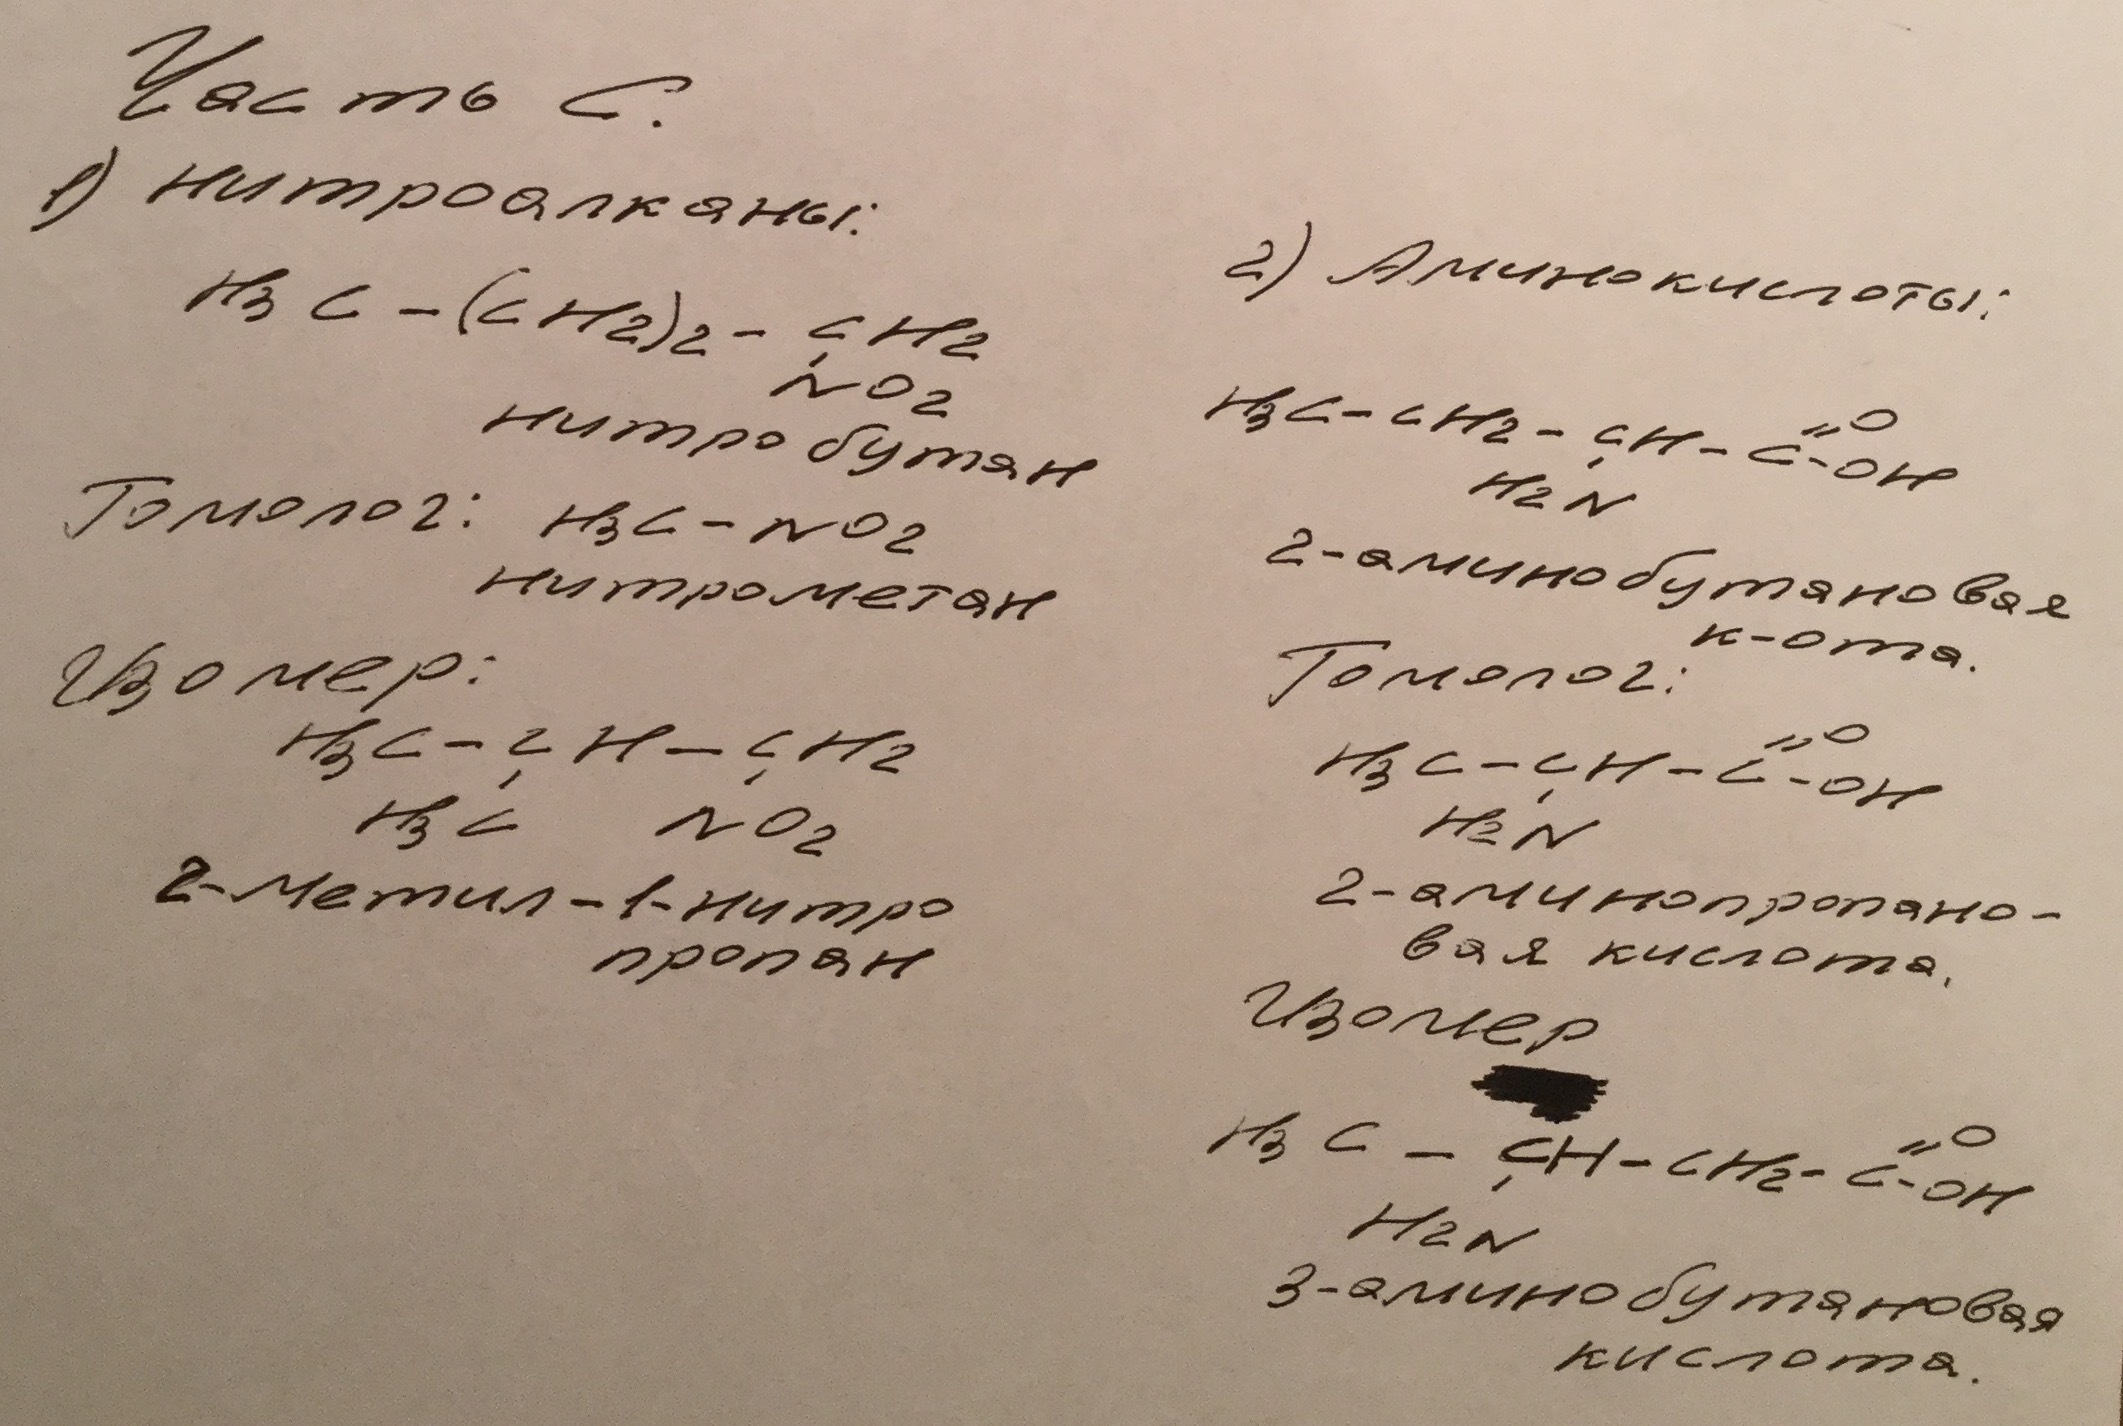 Часть С.
1) нитроалканы:
H3C-(CH2)2-CH2
NO2
нитробутан
Гомолог: H3C-NO2
нитрометан
Изомер:
H3C-CH-CH2
H3C NO2
2-метил-1-нитро
пропан
2) Аминокислоты:
H3C-CH2-CH-C=O
-OH
H2N
2-аминобутановая
к-ота.
Гомолог:
H3C-CH-C=O
-OH
H2N
2-аминопропано-
вая кислота.
Изомер
H3C-CH-CH2-C=O
-OH
H2N
3-аминобутановая
кислота.